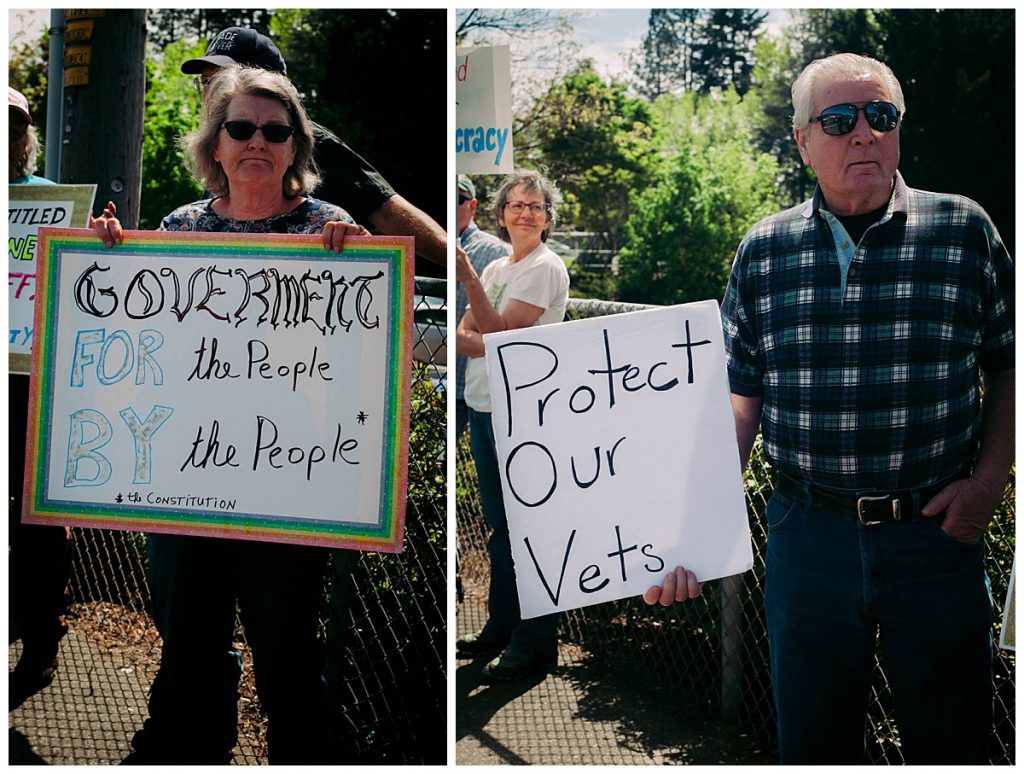 TITLED
GOVERMENT
FOR the People
BY the People*
* the CONSTITUTION
cracy
Protect
Our
Vets